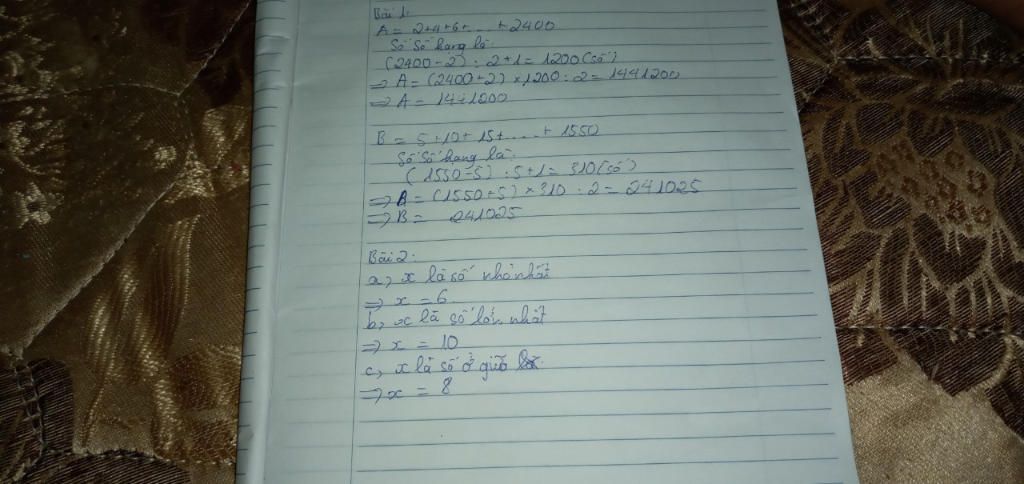 Bài 1:
A = 2+4+6+.....+2400
Số số hạng là:
(2400-2) : 2+1 = 1200 (số)
=> A = (2400+2) × 1200 : 2 = 1441200
=> A = 1441200
B = 5+10+15+.....+1550
Số số hạng là:
(1550-5) : 5+1 = 310 (số)
=> B = (1550+5) × 310 : 2 = 241025
=> B = 241025
Bài 2:
a, x là số nhỏ nhất
=> x = 6
b, x là số lớn nhất
=> x = 10
c, x là số ở giữa
=> x = 8